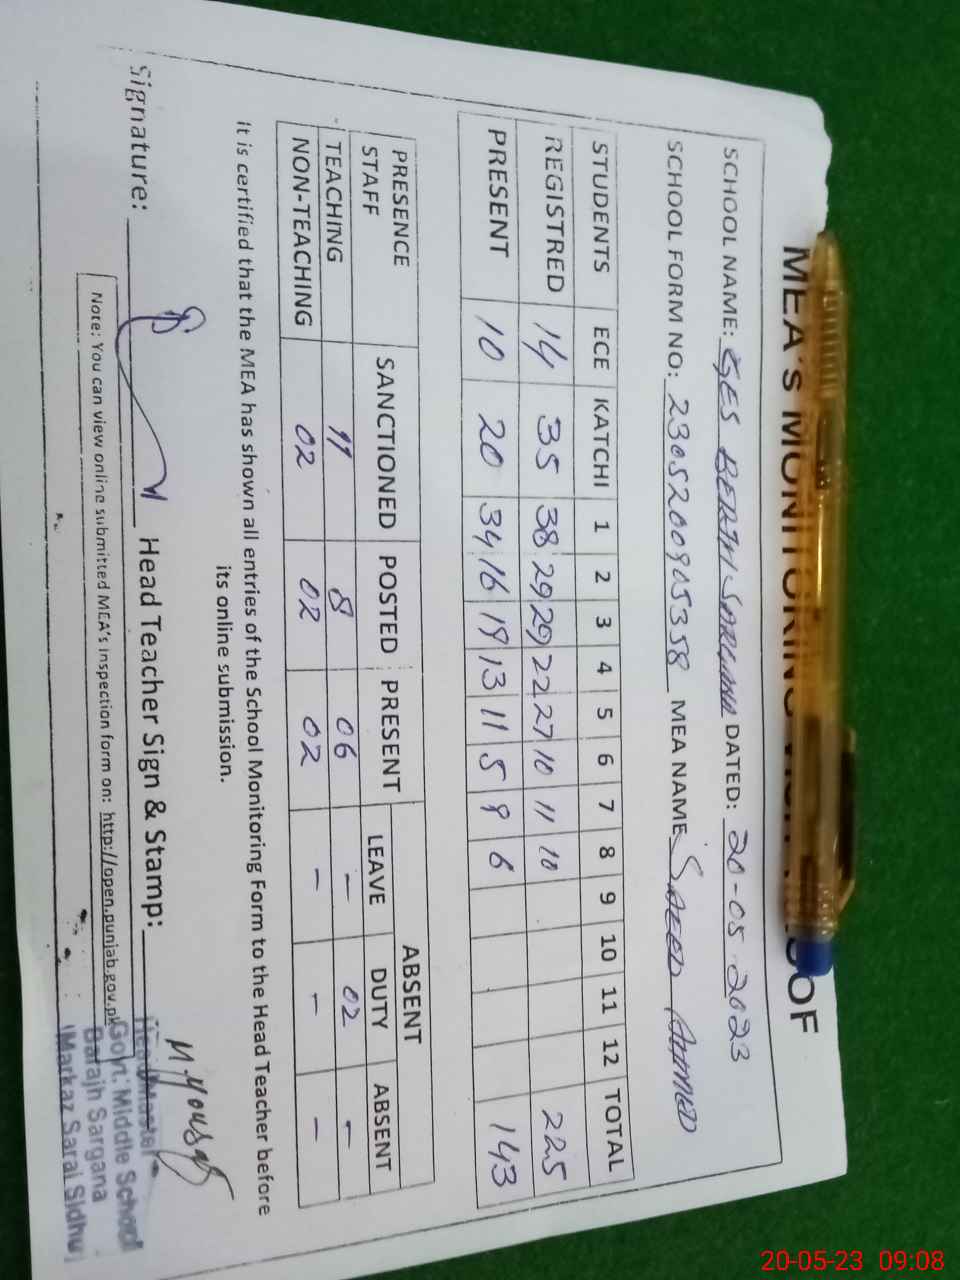 MEA's MONITORING OOF
SCHOOL NAME: GES DATED: 20-05-2023
SCHOOL FORM NO: 2305200905358 MEA NAME SAEED AHMED
STUDENTS ECE KATCHI 1 2 3 4 5 6 7 8 9 10 11 12 TOTAL
REGISTRED 14 35 38 29 29 22 27 10 11 10 225
PRESENT 10 20 34 16 19 13 11 5 9 6 143
PRESENCE STAFF SANCTIONED POSTED PRESENT ABSENT
LEAVE DUTY ABSENT
TEACHING 11 8 06 - 02 -
NON-TEACHING 02 02 02 - - -
It is certified that the MEA has shown all entries of the School Monitoring Form to the Head Teacher before
its online submission.
Signature: Head Teacher Sign & Stamp: M. Yousaf
Note: You can view online submitted MEA's inspection form on: http://open.punjab.gov.pk
Head Master
Govt: Middle School
Barajh Sargana
Markaz Sarai Sidhu
20-05-23 09:08